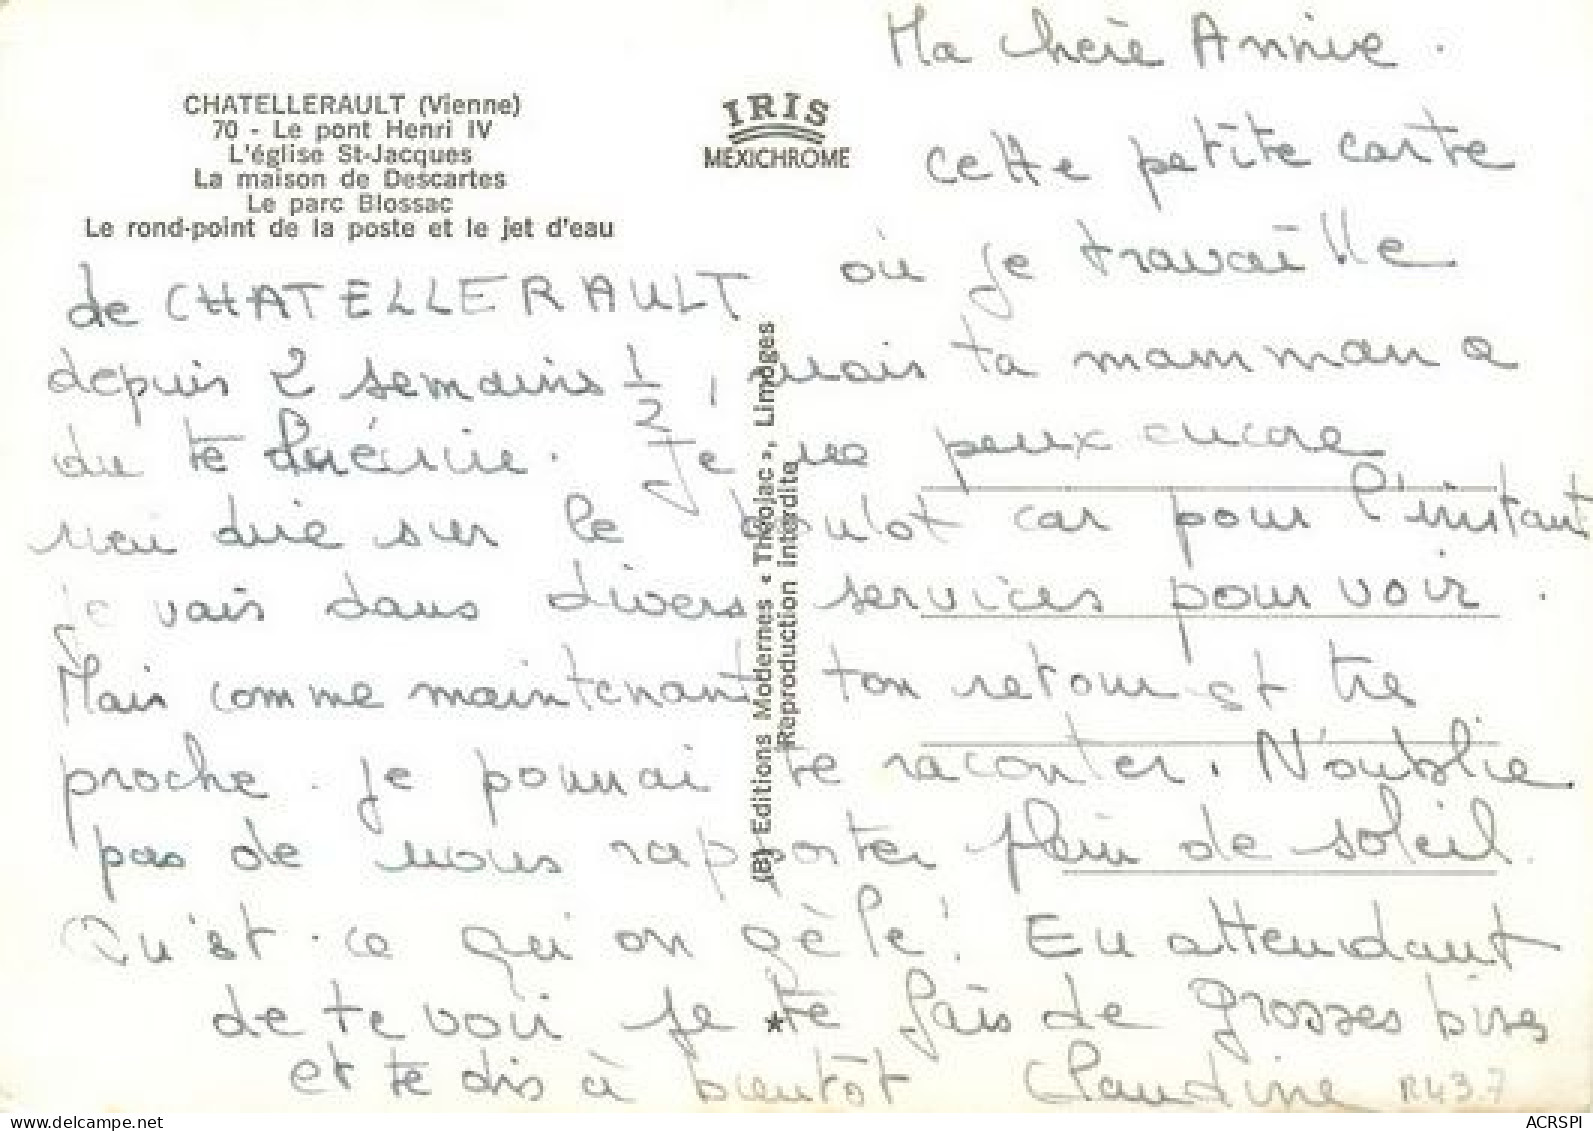 CHATELLERAULT (Vienne)
70 - Le pont Henri IV
L'église St-Jacques
La maison de Descartes
Le parc Blossac
Le rond-point de la poste et le jet d'eau
IRIS
MEXICHROME
(B) Editions Modernes « Théojac », Limoges
Reproduction interdite
Ma chère Annie.
cette petite carte
de CHATELLERAULT où je travaille
depuis 2 semaines 1/2, mais ta mamman a
du te l'écrire. Je ne peux encore
rien dire sur le boulot car pour l'instant
je vais dans divers services pour voir.
Mais comme maintenant ton retour est très
proche. je pourrai te raconter. N'oublie
pas de nous rapporter plein de soleil.
Qu'est-ce qu'on gèle! En attendant
de te voir je te fais de grosses bises
et te dis à bientôt Claudine R43.7
ACRSPI